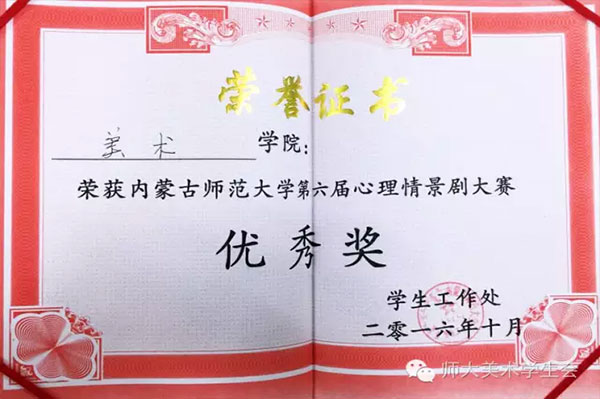 荣誉证书
美术学院：
荣获内蒙古师范大学第六届心理情景剧大赛
优秀奖
学生工作处
二零一六年十月
师大美术学生会